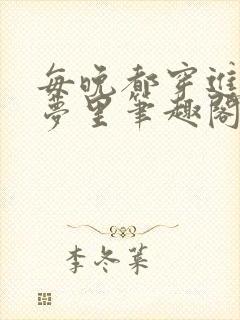 每晚都穿进
梦里笔趣阁
李冬菜